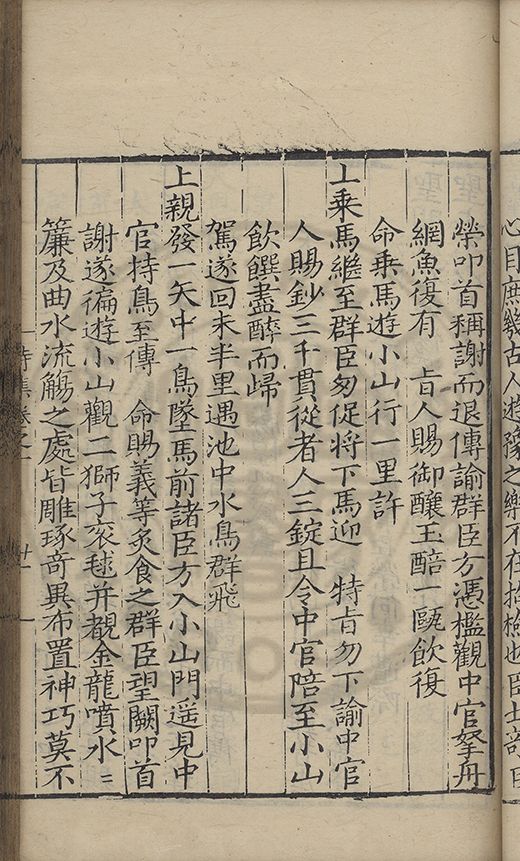 心目庶幾古人遊豫之樂不在
榮叩首稱謝而退傳諭群臣方憑檻觀中官拏舟
網魚復有 旨人賜御醸玉醅一甌飲復
命乗馬遊小山行一里許
上乗馬繼至群臣匆促将下馬迎 特旨勿下諭中官
人賜鈔三千貫從者人三錠且令中官陪至小山
飲饌盡醉而歸
駕遂回未半里遇池中水鳥群飛
上親發一矢中一鳥墜馬前諸臣方入小山門遥見中
官持鳥至傳 命賜義等炙食之群臣望闕叩首
謝遂徧遊小山觀二獅子衮毬并覩金龍噴水〻
簾及曲水流觴之處皆雕琢奇異布置神巧莫不
詩集卷之一